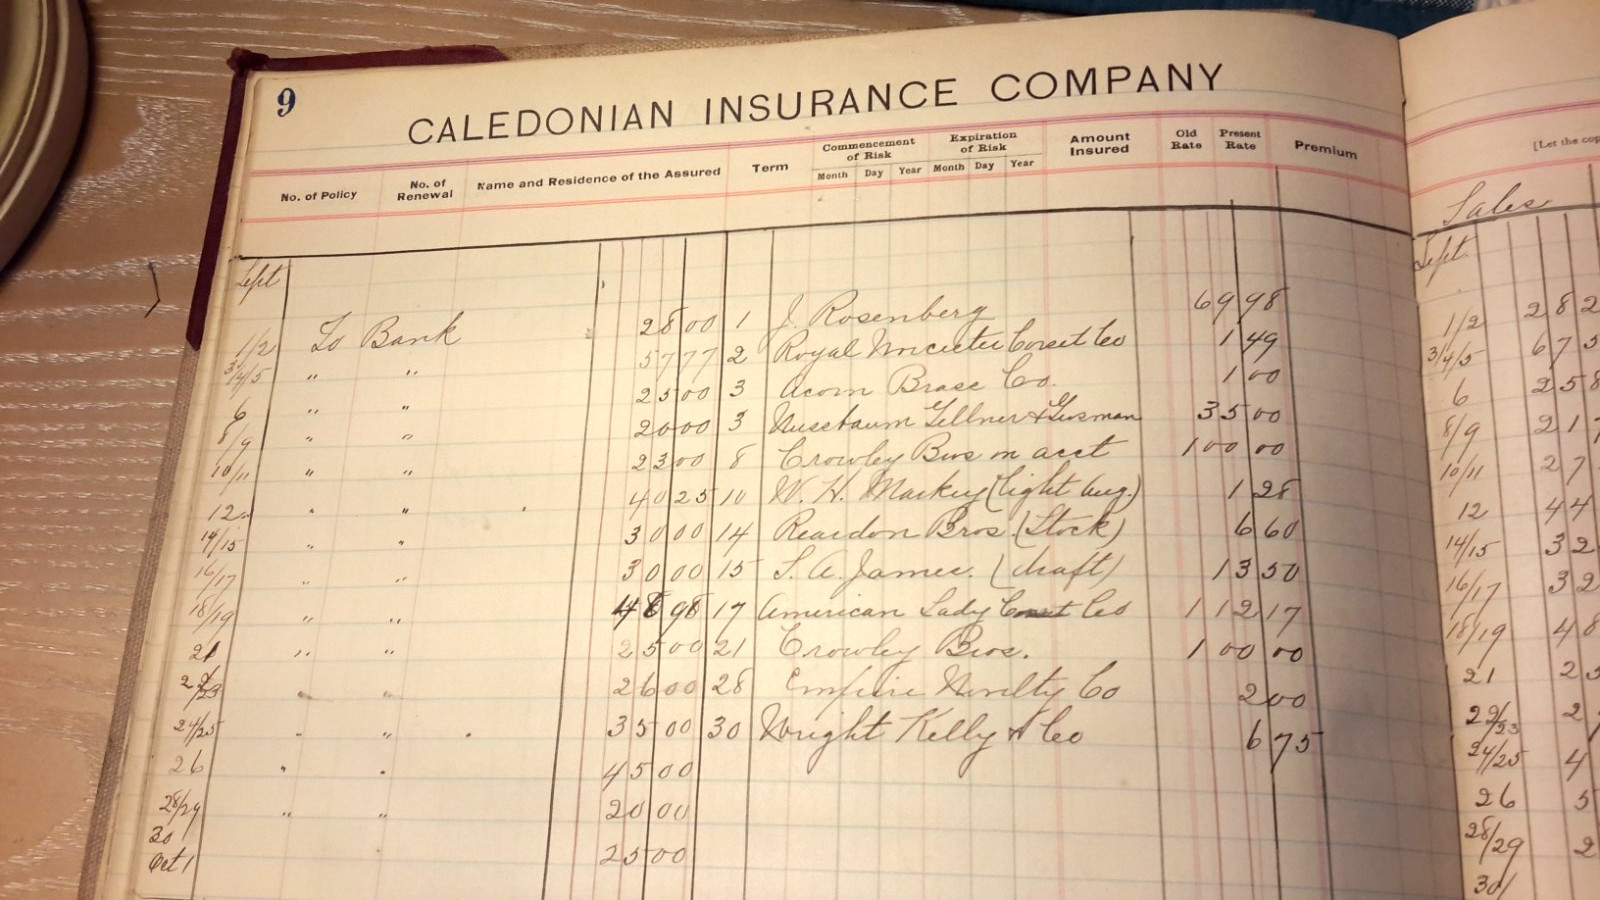 9
CALEDONIAN INSURANCE COMPANY
No. of Policy No. of Renewal Name and Residence of the Assured Term Commencement of Risk Month Day Year Expiration of Risk Month Day Year Amount Insured Old Rate Present Rate Premium
[Let the cop
Sales
Sept
Sept.
1/2 To Bank 28 00 1 J. Rosenberg 69 98
3/4/5 " " 57 77 2 Royal Worcester Corset Co 1 49
6 " " 25 00 3 Acorn Brass Co. 1 00
8/9 " " 20 00 3 Nussbaum Gellner & Gusman 35 00
10/11 " " 23 00 8 Crowley Bros on acct 100 00
12 " " 40 25 10 W. H. Markey (Light Aug.) 1 28
14/15 " " 30 00 14 Reardon Bros. (Stock) 6 60
16/17 " " 30 00 15 S. A. James. (draft) 13 50
18/19 " " 48 98 17 American Lady Corset Co 112 17
21 " " 25 00 21 Crowley Bros. 100 00
22/23 " " 26 00 28 Empire Novelty Co 2 00
24/25 " " 35 00 30 Wright Kelly & Co 6 75
26 " " 45 00
28/29 " " 20 00
30
Oct 1 25 00
1/2 282
3/4/5 675
6 258
8/9 217
10/11 27
12 44
14/15 32
16/17 32
18/19 48
21 25
22/23 2
24/25 4
26 5
28/29 2
30/